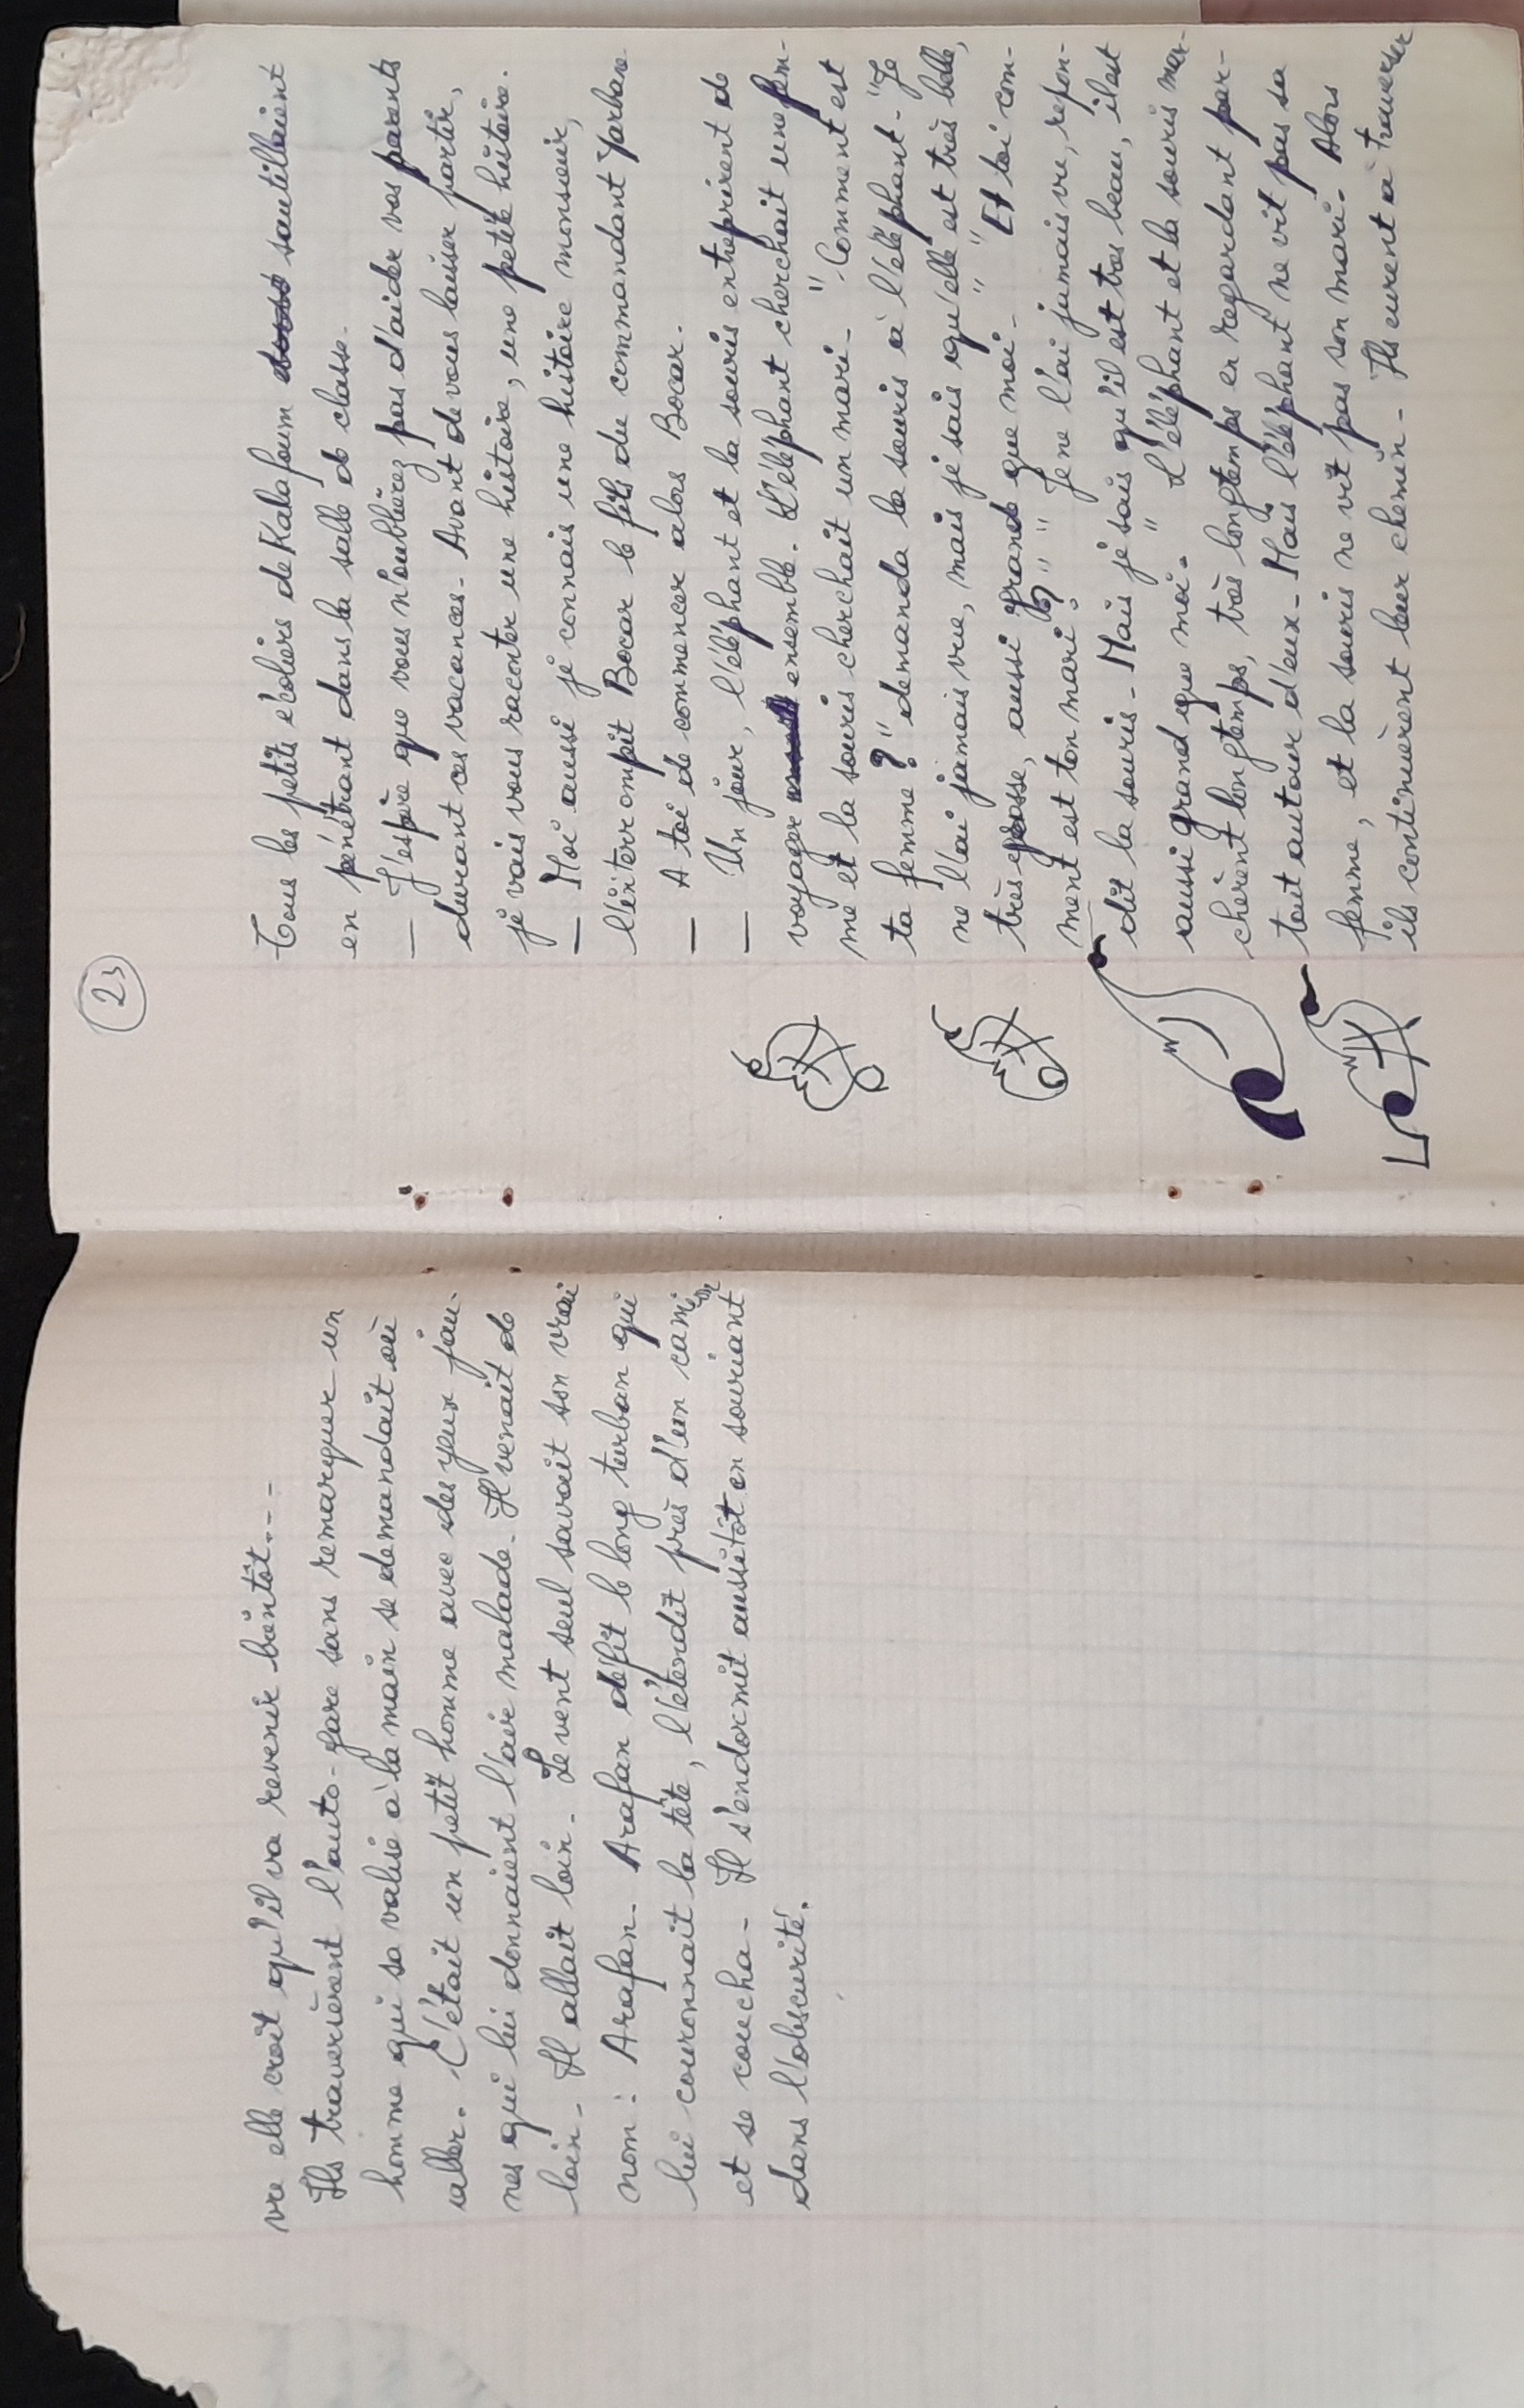 vre elle croit qu'il va revenir bientôt...
Ils traversèrent l'auto-gare sans remarquer un
homme qui sa valise à la main se demandait où
aller. C'était un petit homme avec des yeux jau-
nes qui lui donnaient l'air malade. Il venait de
loin. Il allait loin. Le vent seul savait son vrai
nom : Arafan. Arafan défit le long turban qui
lui couronnait la tête, l'étendit près d'un camion
et se coucha. Il s'endormit aussitôt en souriant
dans l'obscurité.
23
Tous les petits écoliers de Kalafoum sautillaient
en pénétrant dans la salle de classe.
— J'espère que vous n'oublierez pas d'aider vos parents
durant ces vacances. Avant de vous laisser partir,
je vais vous raconter une histoire, une petite histoire.
— Moi aussi je connais une histoire monsieur,
l'interrompit Bocar le fils du commandant Yarbane
— A toi de commencer alors Bocar.
— Un jour, l'éléphant et la souris entreprirent de
voyager ensemble. L'éléphant cherchait une fem-
me et la souris cherchait un mari. "Comment est
ta femme ?" demanda la souris à l'éléphant. "Je
ne l'ai jamais vue, mais je sais qu'elle est très belle,
très grosse, aussi grande que moi." "Et toi com-
ment est ton mari ?" "Je ne l'ai jamais vu, répon-
dit la souris. Mais je sais qu'il est très beau, il est
aussi grand que moi." L'éléphant et la souris mar-
chèrent longtemps, très longtemps en regardant par-
tout autour d'eux. Mais l'éléphant ne vit pas sa
femme, et la souris ne vit pas son mari. Alors
ils continuèrent leur chemin. Ils eurent à traverser